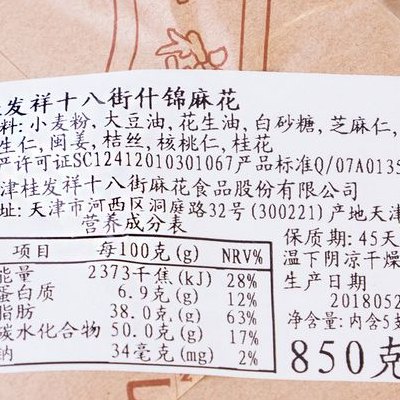 发祥十八街什锦麻花
料: 小麦粉, 大豆油, 花生油, 白砂糖, 芝麻仁,
生仁, 闽姜, 桔丝, 核桃仁, 桂花
产许可证SC12412010301067 产品标准Q/07A0135
津桂发祥十八街麻花食品股份有限公司
址: 天津市河西区洞庭路32号 (300221) 产地天津
营养成分表
项目 每100克(g) NRV%
能量 2373千焦(kJ) 28%
蛋白质 6.9克(g) 12%
脂肪 38.0克(g) 63%
碳水化合物 50.0克(g) 17%
钠 34毫克(mg) 2%
保质期: 45天
温下阴凉干燥
生产日期
2018052
净含量: 内含5支
850克